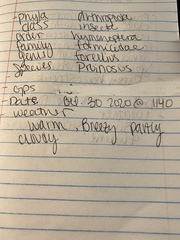 phyla Arthropoda
class insecta
order hymenoptera
family formicidae
genus forelius
species Pruinosus
GPS :
Date Jul. 30 2020 @ 1140
weather
warm, Breezy partly
cloudy